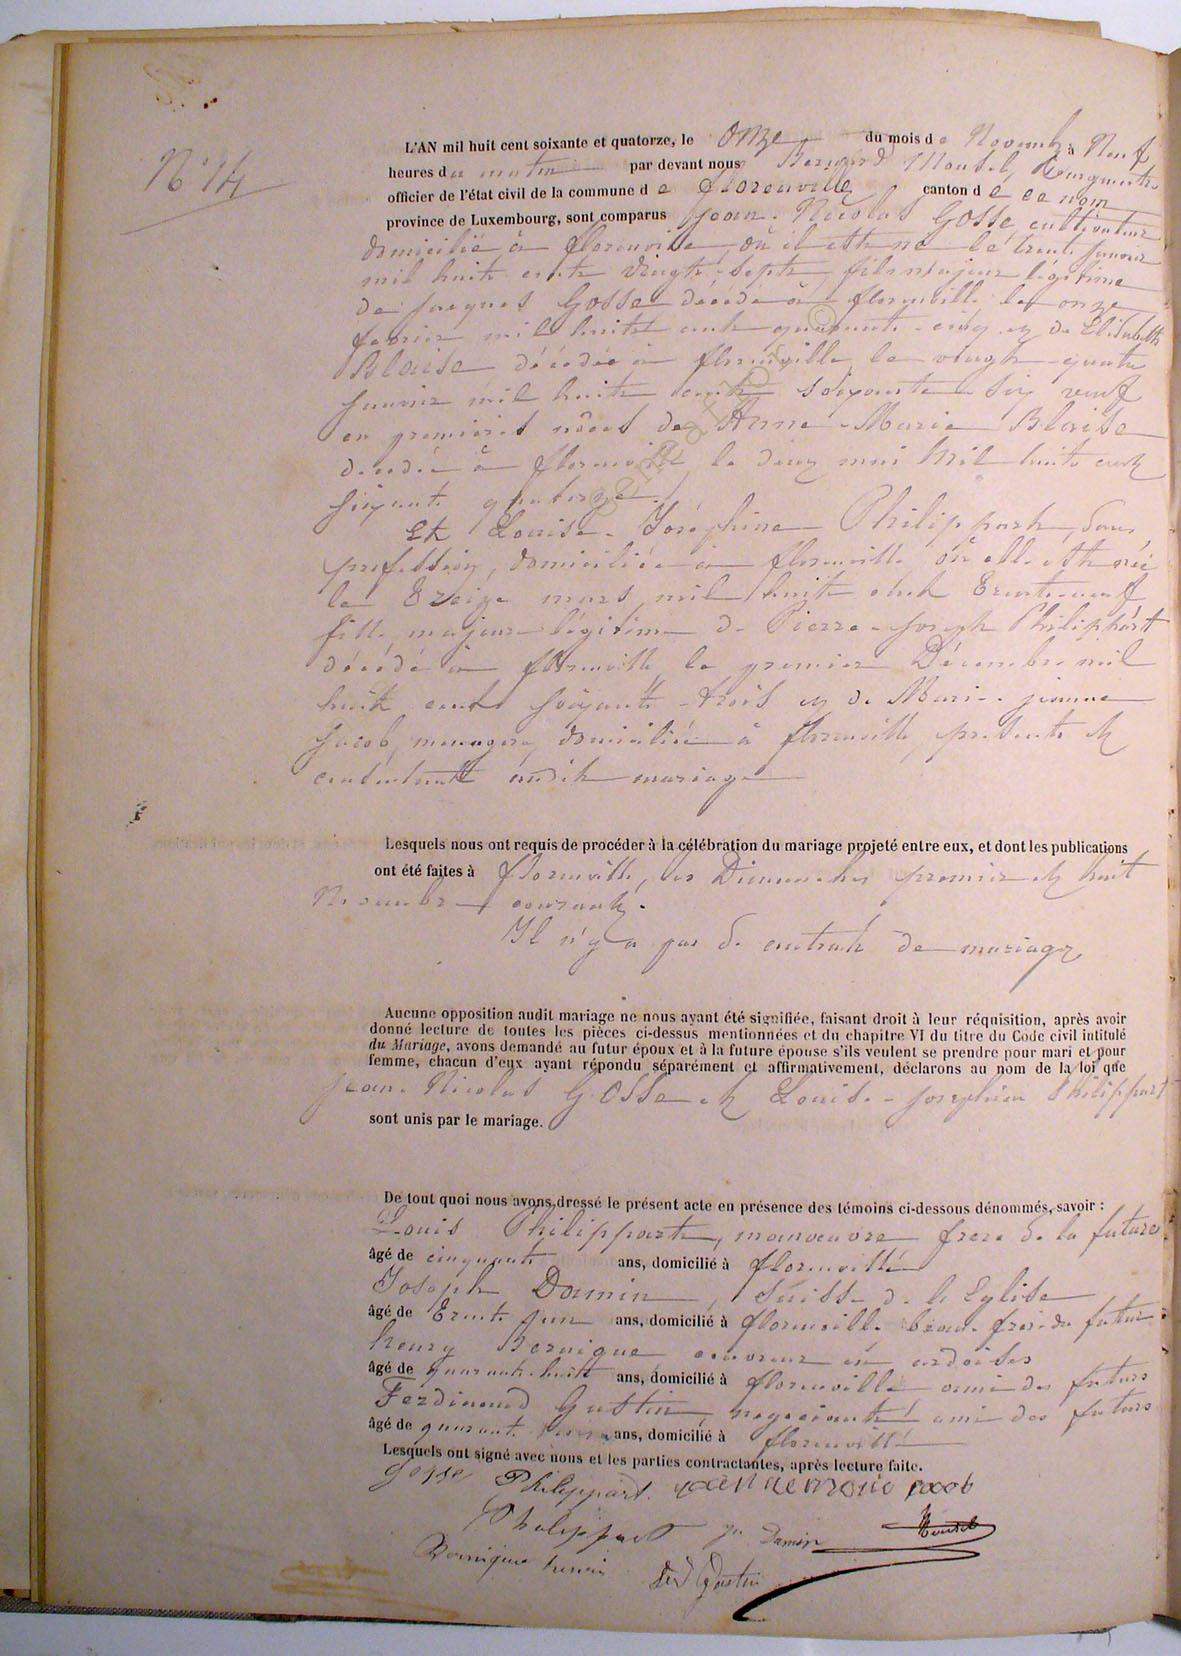 N° 14
L'AN mil huit cent soixante et quatorze, le onze du mois de Novembre à Neuf
heures du matin par devant nous Bernard Mousel, Bourgmestre
officier de l'état civil de la commune de florenville canton de ce nom
province de Luxembourg, sont comparus Jean-Nicolas Gosse, cultivateur
domicilié à florenville, où il est né le trente janvier
mil huit cent vingt-sept, fils majeur légitime
de Jacques Gosse décédé à florenville le onze
fevrier mil huit cent quarante-cinq et de Elisabeth
Blaise décédée à florenville le vingt-quatre
janvier mil huit cent soixante-six veuf
en premières noces de Anne-Marie Blaise
décédée à florenville le deux mai mil huit cent
soixante quatorze
© GENEANET
Et Louise-Joséphine Philippart, sans
profession, domiciliée à florenville où elle est née
le treize mars mil huit cent trente-neuf
fille majeure légitime de Pierre-Joseph Philippart
décédé à florenville le premier Décembre mil
huit cent soixante-trois et de Marie-jeanne
Jacob, menagère, domiciliée à florenville, présente et
consentante audit mariage
Lesquels nous ont requis de procéder à la célébration du mariage projeté entre eux, et dont les publications
ont été faites à florenville, les Dimanches premier et huit
Novembre courant.
Il n'y a pas de contrat de mariage
Aucune opposition audit mariage ne nous ayant été signifiée, faisant droit à leur réquisition, après avoir
donné lecture de toutes les pièces ci-dessus mentionnées et du chapitre VI du titre du Code civil intitulé
du Mariage, avons demandé au futur époux et à la future épouse s'ils veulent se prendre pour mari et pour
femme, chacun d'eux ayant répondu séparément et affirmativement, déclarons au nom de la loi que
Jean-Nicolas Gosse et Louise-Joséphine Philippart
sont unis par le mariage.
De tout quoi nous avons dressé le présent acte en présence des témoins ci-dessous dénommés, savoir :
Louis Philippart, manoeuvre frere de la future
âgé de cinquante ans, domicilié à florenville
Joseph Damin, Suisse de l'Eglise
âgé de trente ans, domicilié à florenville beau-frere du futur
henry Bernique couvreur en ardoises
âgé de quarante-huit ans, domicilié à florenville ami des futurs
Ferdinand Gustin, negociant ami des futurs
âgé de quarante ans, domicilié à florenville
Lesquels ont signé avec nous et les parties contractantes, après lecture faite.
Gosse Philippart. jacob
Philippart Jh Damin Mousel
henri fd Gustin